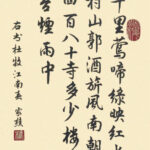 千里鶯啼綠映紅水
村山郭酒旗風南朝
四百八十寺多少樓
台煙雨中
右書杜牧江南春